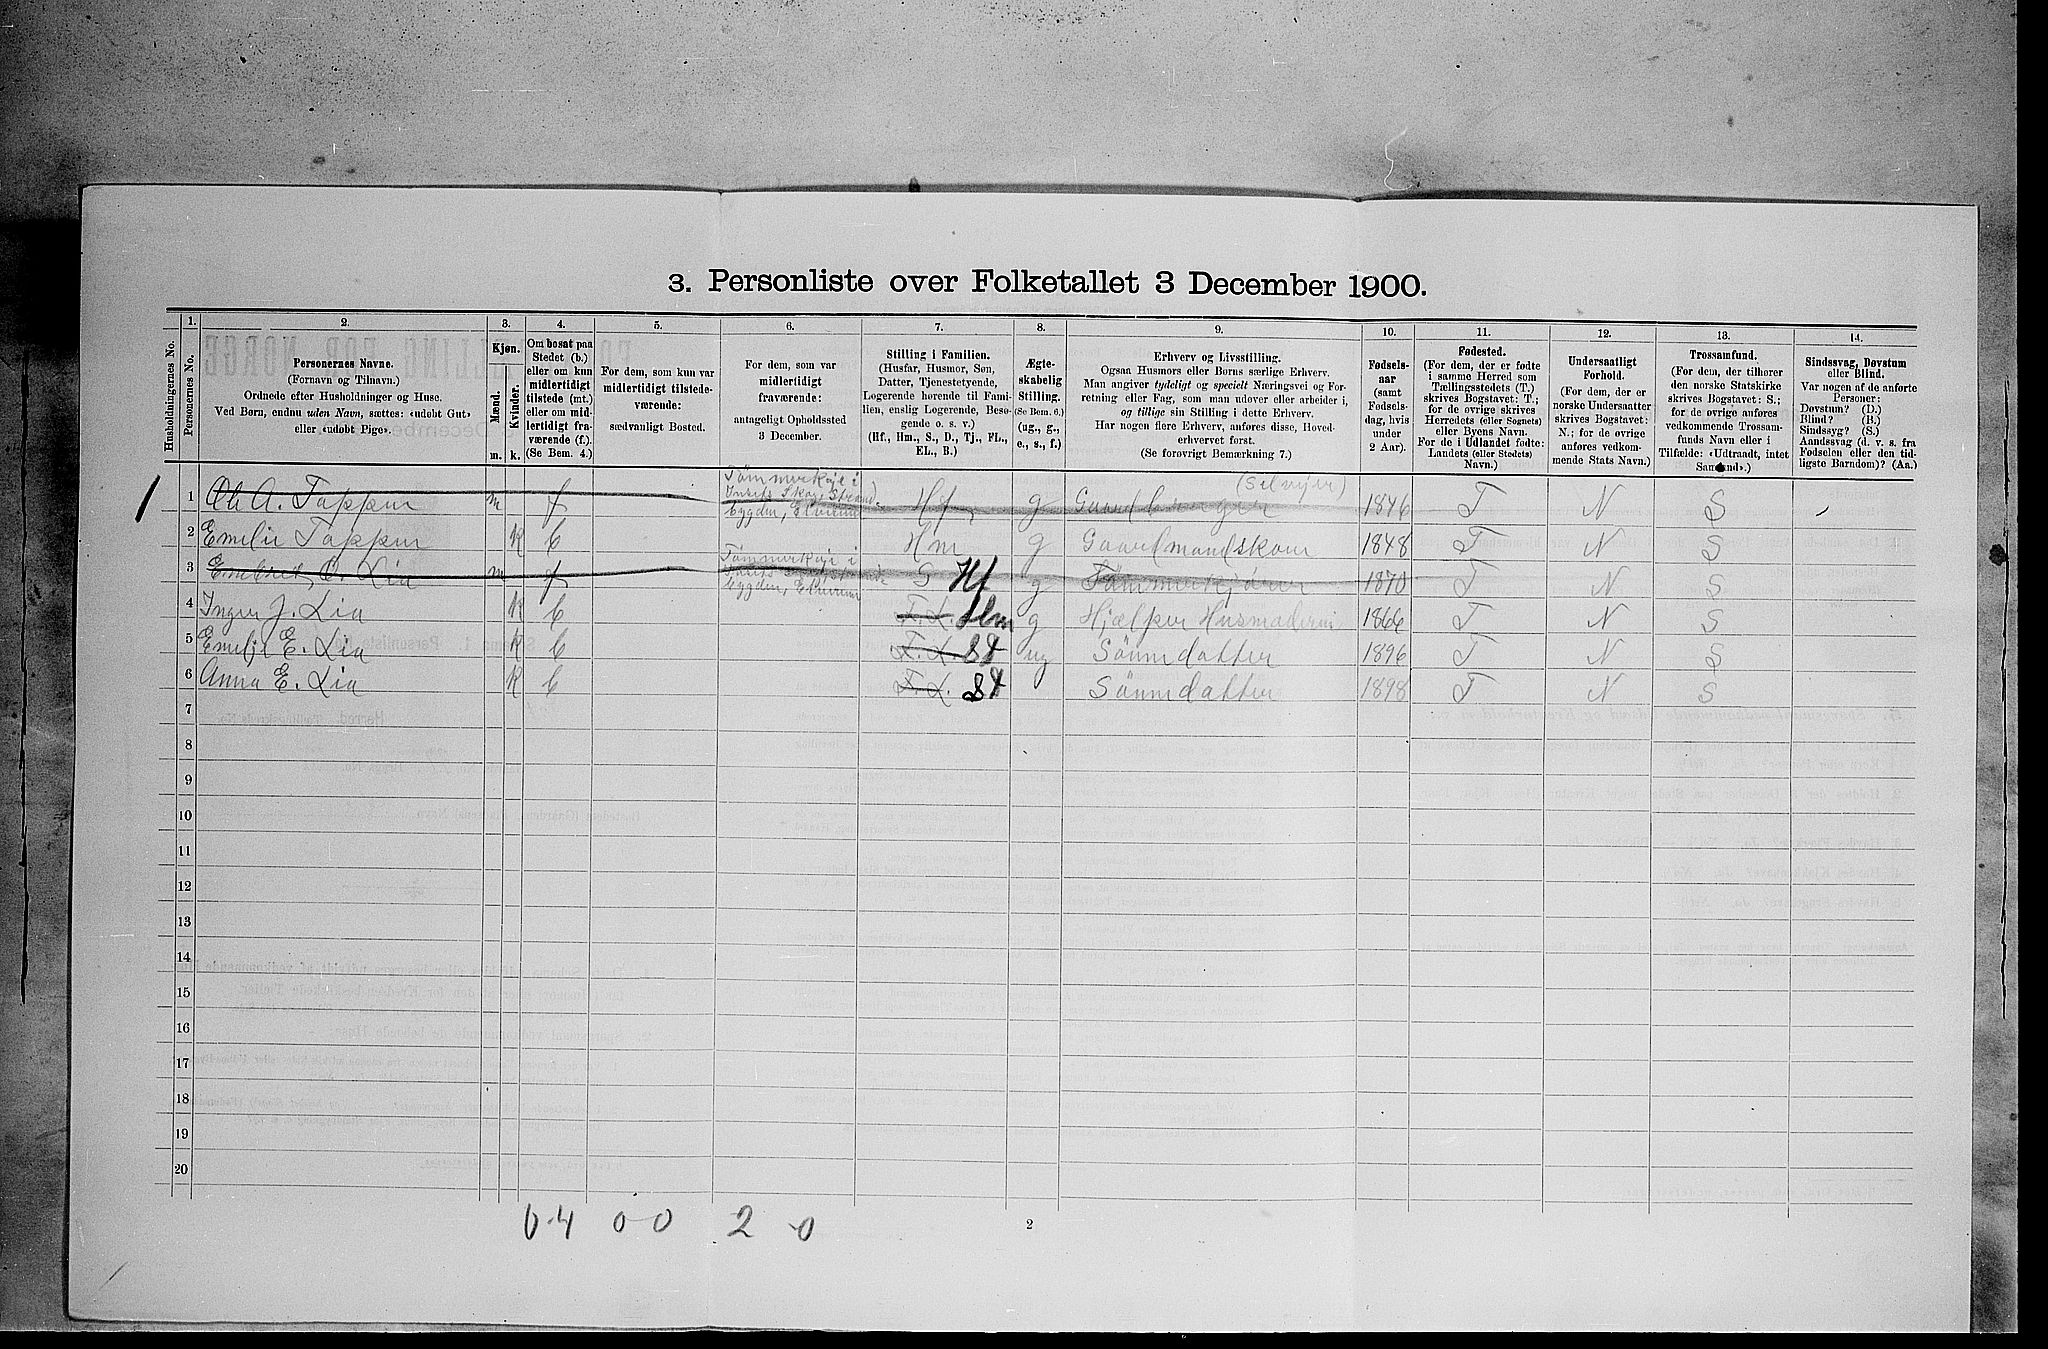 3. Personliste over Folketallet 3 December 1900.
Husholdningernes No.
1.
Personernes No.
2.
Personernes Navne.
(Fornavn og Tilnavn.)
Ordnede efter Husholdninger og Huse.
Ved Børn, endnu uden Navn, sættes: «udøbt Gut»
eller «udøbt Pige».
3.
Kjøn.
Mænd.
Kvinder.
m.
k.
4.
Om bosat paa
Stedet (b.)
eller om kun
midlertidigt
tilstede (mt.)
eller om mid-
lertidigt fra-
værende (f.).
(Se Bem. 4.)
5.
For dem, som kun var
midlertidigt tilstede-
værende:
sædvanligt Bosted.
6.
For dem, som var
midlertidigt
fraværende:
antageligt Opholdssted
3 December.
7.
Stilling i Familien.
(Husfar, Husmor, Søn,
Datter, Tjenestetyende,
Logerende hørende til Fami-
lien, enslig Logerende, Besø-
gende o. s. v.)
(Hf., Hm., S., D., Tj., FL.,
EL., B.)
8.
Ægte-
skabelig
Stilling.
(Se Bem. 6.)
(ug., g.,
e., s., f.)
9.
Erhverv og Livsstilling.
Ogsaa Husmors eller Børns særlige Erhverv.
Man angiver tydeligt og specielt Næringsvei og For-
retning eller Fag, som man udøver eller arbeider i,
og tillige sin Stilling i dette Erhverv.
Har nogen flere Erhverv, anføres disse, Hoved-
erhvervet først.
(Se forøvrigt Bemærkning 7.)
10.
Fødsels-
aar
(samt
Fødsels-
dag, hvis
under
2 Aar).
11.
Fødested.
(For dem, der er fødte
i samme Herred som
Tællingsstedets (T.)
skrives Bogstavet: T.;
for de øvrige skrives
Herredets (eller Sognets)
eller Byens Navn.
For de i Udlandet fødte:
Landets (eller Stedets)
Navn.)
12.
Undersaatligt
Forhold.
(For dem, der er
norske Undersaatter
skrives Bogstavet:
N.; for de øvrige
anføres vedkom-
mende Stats Navn.)
13.
Trossamfund.
(For dem, der tilhører
den norske Statskirke
skrives Bogstavet: S.;
for de øvrige anføres
vedkommende Trossam-
funds Navn eller i
Tilfælde: «Udtraadt, intet
Samfund».)
14.
Sindssvag, Døvstum
eller Blind.
Var nogen af de anførte
Personer:
Døvstum? (D.)
Blind? (B.)
Sindssyg? (S.)
Aandssvag (d. v. s. fra
Fødselen eller den tid-
ligste Barndom)? (Aa.)
1 1 Ole A. Tappen m f Tømmerkøre i Hf. g Gaardbruger (Selveier) 1846 T N S
2 Emelie Tappen k b Hm g Gaardmandskone 1848 T N S
3 Embret O. Lia m f Tømmerkøre i S Hf g Tømmerkjører 1870 T N S
bygden, Elverum
4 Inger J. Lia k b F. L. Hm g Hjælper Husmoderen 1866 T N S
5 Emelje E. Lia k b F. L. SD ug Sønnedatter 1896 T N S
6 Anna E. Lia k b F. L. SD Sønnedatter 1898 T N S
7
8
9
10
11
12
13
14
15
16
17
18
19
20
0-4 0-0 2 0
2